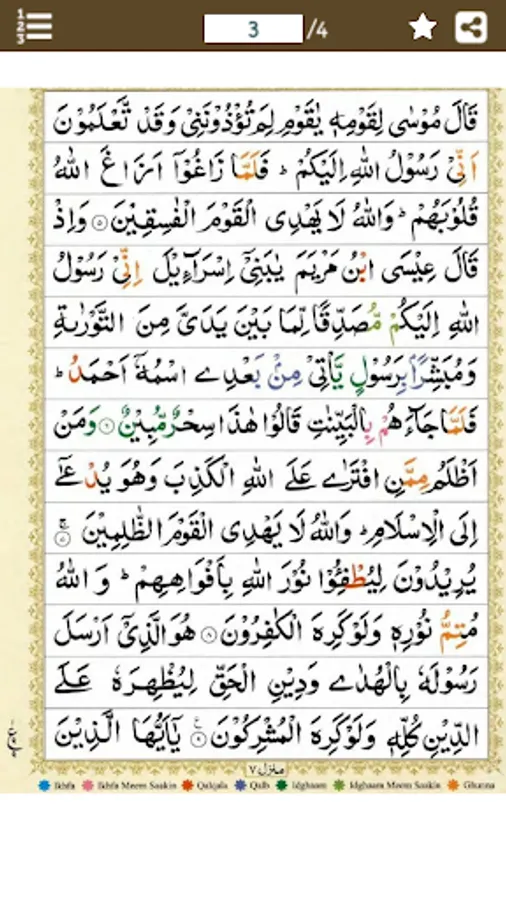 3 /4
قَالَ مُوْسٰى لِقَوْمِهٖ يٰقَوْمِ لِمَ تُؤْذُوْنَنِيْ وَقَدْ تَّعْلَمُوْنَ
اَنِّيْ رَسُوْلُ اللّٰهِ اِلَيْكُمْ ؕ فَلَمَّا زَاغُوْۤا اَزَاغَ اللّٰهُ
قُلُوْبَهُمْ ؕ وَاللّٰهُ لَا يَهْدِى الْقَوْمَ الْفٰسِقِيْنَ ۝۵ وَاِذْ
قَالَ عِيْسَى ابْنُ مَرْيَمَ يٰبَنِيْۤ اِسْرَآءِيْلَ اِنِّيْ رَسُوْلُ
اللّٰهِ اِلَيْكُمْ مُّصَدِّقًا لِّمَا بَيْنَ يَدَيَّ مِنَ التَّوْرٰىةِ
وَمُبَشِّرًۢا بِرَسُوْلٍ يَّاْتِيْ مِنْۢ بَعْدِى اسْمُهٗۤ اَحْمَدُ ؕ
فَلَمَّا جَآءَهُمْ بِالْبَيِّنٰتِ قَالُوْا هٰذَا سِحْرٌ مُّبِيْنٌ ۝۶ وَمَنْ
اَظْلَمُ مِمَّنِ افْتَرٰى عَلَى اللّٰهِ الْكَذِبَ وَهُوَ يُدْعٰۤى
اِلَى الْاِسْلَامِ ؕ وَاللّٰهُ لَا يَهْدِى الْقَوْمَ الظّٰلِمِيْنَ ۝۷ۚ
يُرِيْدُوْنَ لِيُطْفِـُٔوْا نُوْرَ اللّٰهِ بِاَفْوَاهِهِمْ ؕ وَاللّٰهُ
مُتِمُّ نُوْرِهٖ وَلَوْ كَرِهَ الْكٰفِرُوْنَ ۝۸ هُوَ الَّذِيْۤ اَرْسَلَ
رَسُوْلَهٗ بِالْهُدٰى وَدِيْنِ الْحَقِّ لِيُظْهِرَهٗ عَلَى
الدِّيْنِ كُلِّهٖ وَلَوْ كَرِهَ الْمُشْرِكُوْنَ ۝۹ يٰۤاَيُّهَا الَّذِيْنَ
منزل ٧
Ikhfa Ikhfa Meem Saakin Qalqala Qalb Idghaam Idghaam Meem Saakin Ghunna